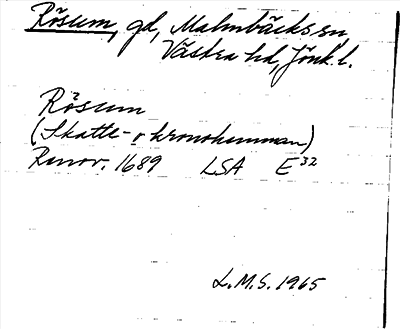 Rösum, gd, Malmbäcks sn,
Västra hd, Jönk. l.
Rösum
(Skatte- o kronohemman)
Renov. 1689 LSA E³²
L.M.S. 1965